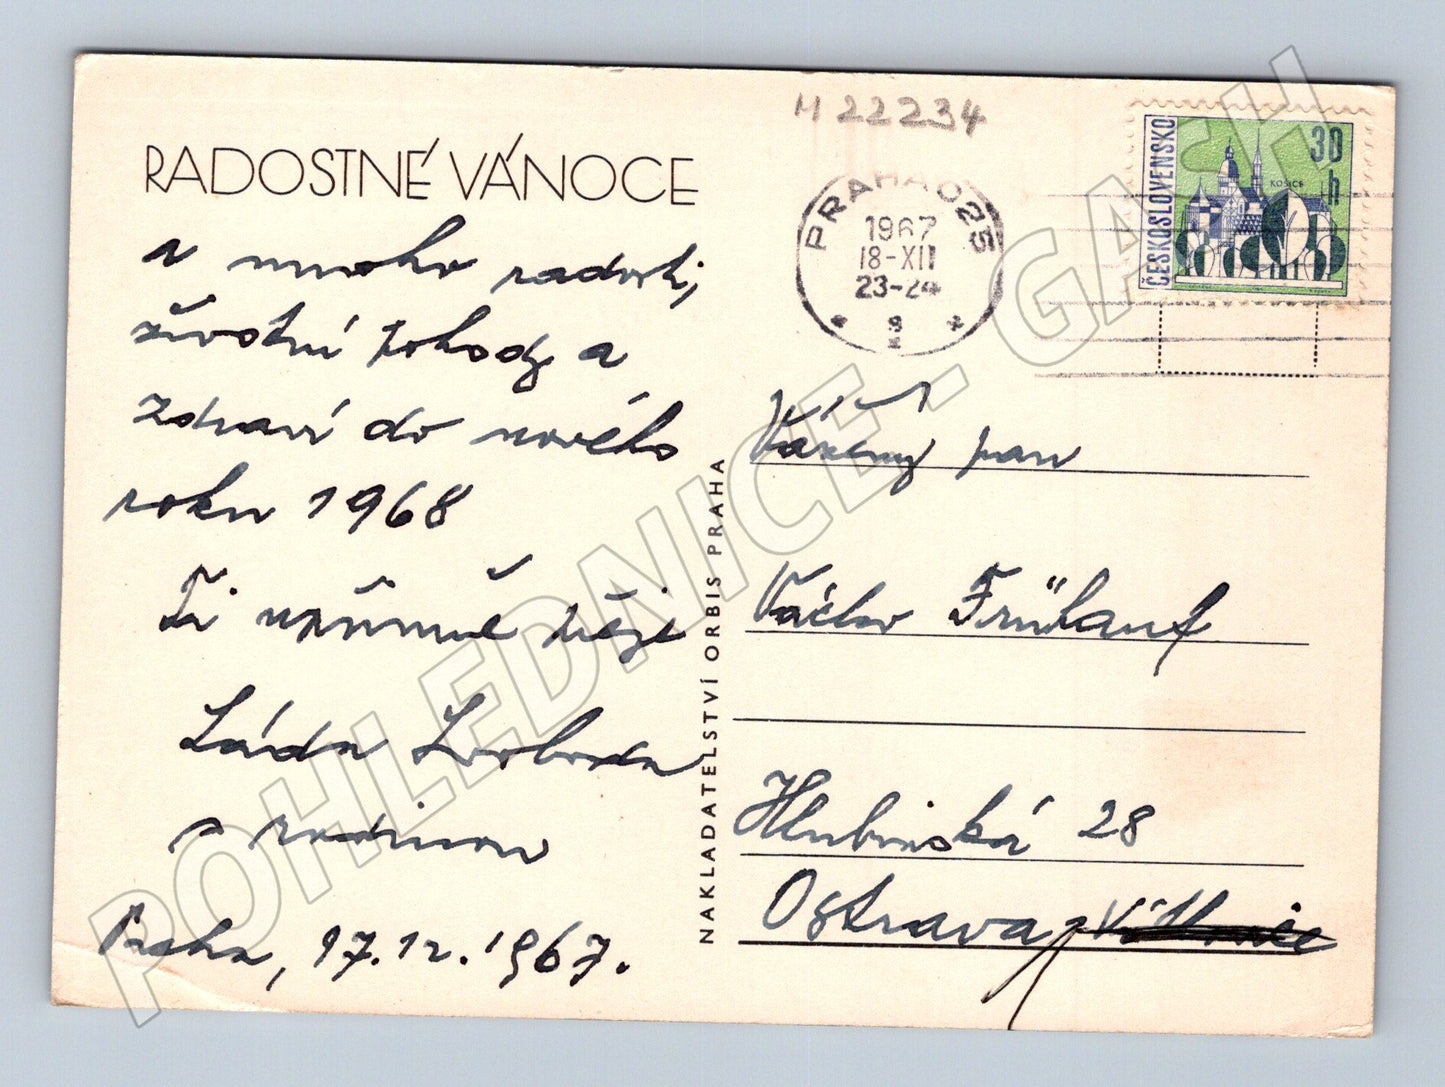 M 22234
RADOSTNÉ VÁNOCE
a mnoho radosti,
životní pohody a
zdraví do nového
roku 1968
Ti upřímně přeje
Láďa Svoboda
s rodinou
Praha, 17.12.1967.
NAKLADATELSTVÍ ORBIS PRAHA
PRAHA 025
1967
18-XII
23-24
ČESKOSLOVENSKO
30
h
KOŠICE
Vážený pan
Václav Frühauf
Hlubinská 28
Ostrava
POHLEDNICE - GASH